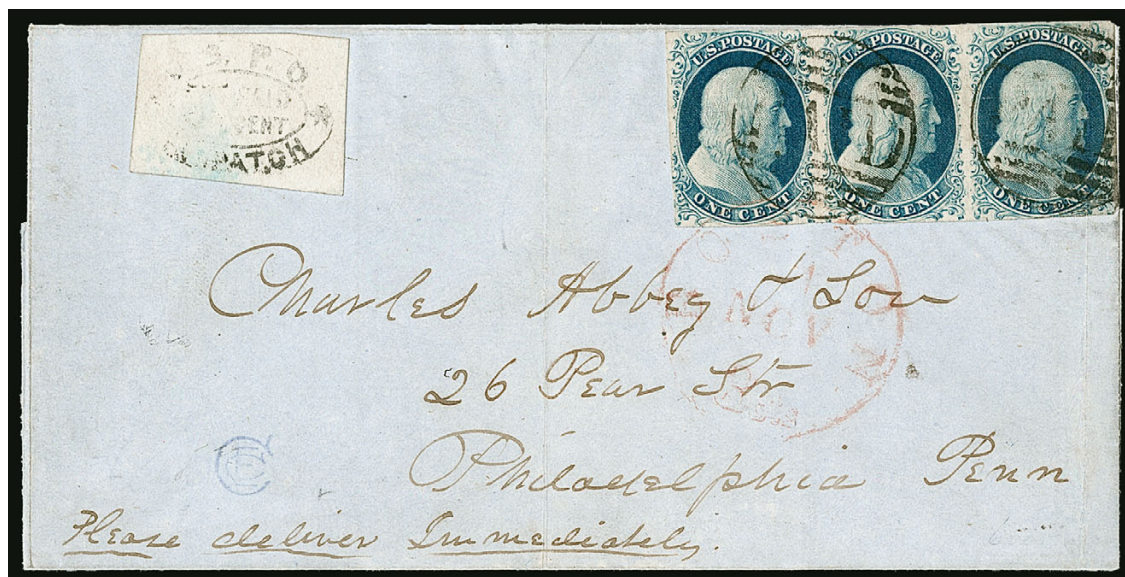 U.S.P.O.
CENT
DESPATCH
U.S. POSTAGE U.S. POSTAGE U.S. POSTAGE
ONE CENT ONE CENT ONE CENT
NOV
Charles Abbey & Son
26 Pear Str
Philadelphia Penn
Please deliver Immediately.